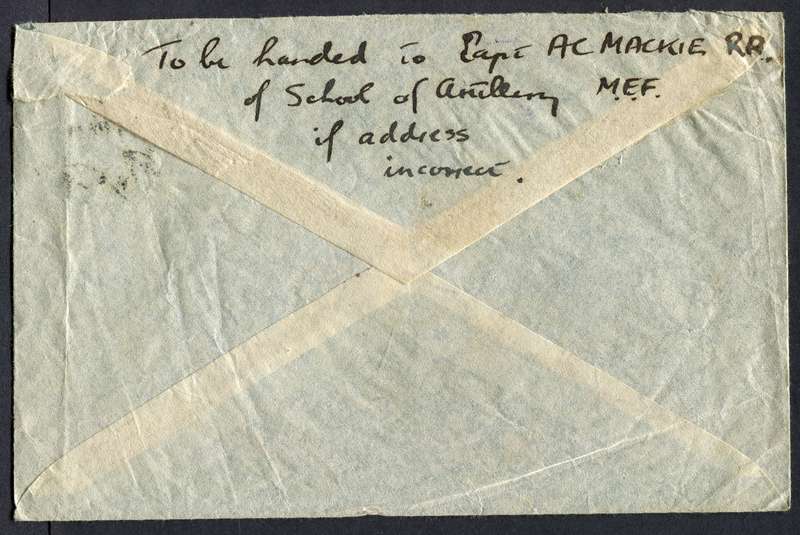 To be handed to Capt AC MACKIE R.A.
of School of Artillery M.E.F.
if address
incorrect.